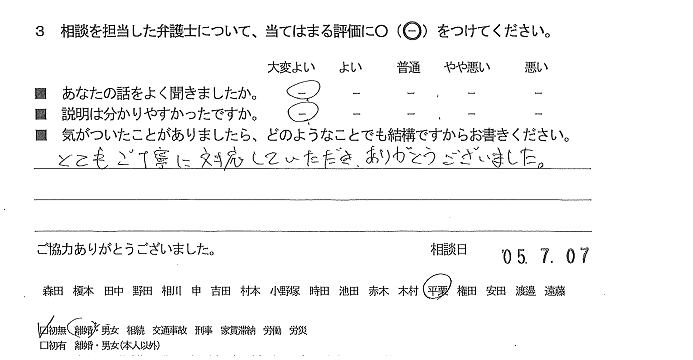 3 相談を担当した弁護士について、当てはまる評価に〇（⊖）をつけてください。
大変よい よい 普通 やや悪い 悪い
■ あなたの話をよく聞きましたか。 － － － － －
■ 説明は分かりやすかったですか。 － － － － －
■ 気がついたことがありましたら、どのようなことでも結構ですからお書きください。
とてもご丁寧に対応していただき、ありがとうございました。
ご協力ありがとうございました。 相談日 '05.7.07
森田 榎本 田中 野田 相川 申 吉田 村本 小野塚 時田 池田 赤木 木村 平栗 権田 安田 渡邉 遠藤
□初無 離婚・男女 相続 交通事故 刑事 家賃滞納 労働 労災
□初有 離婚・男女(本人以外)